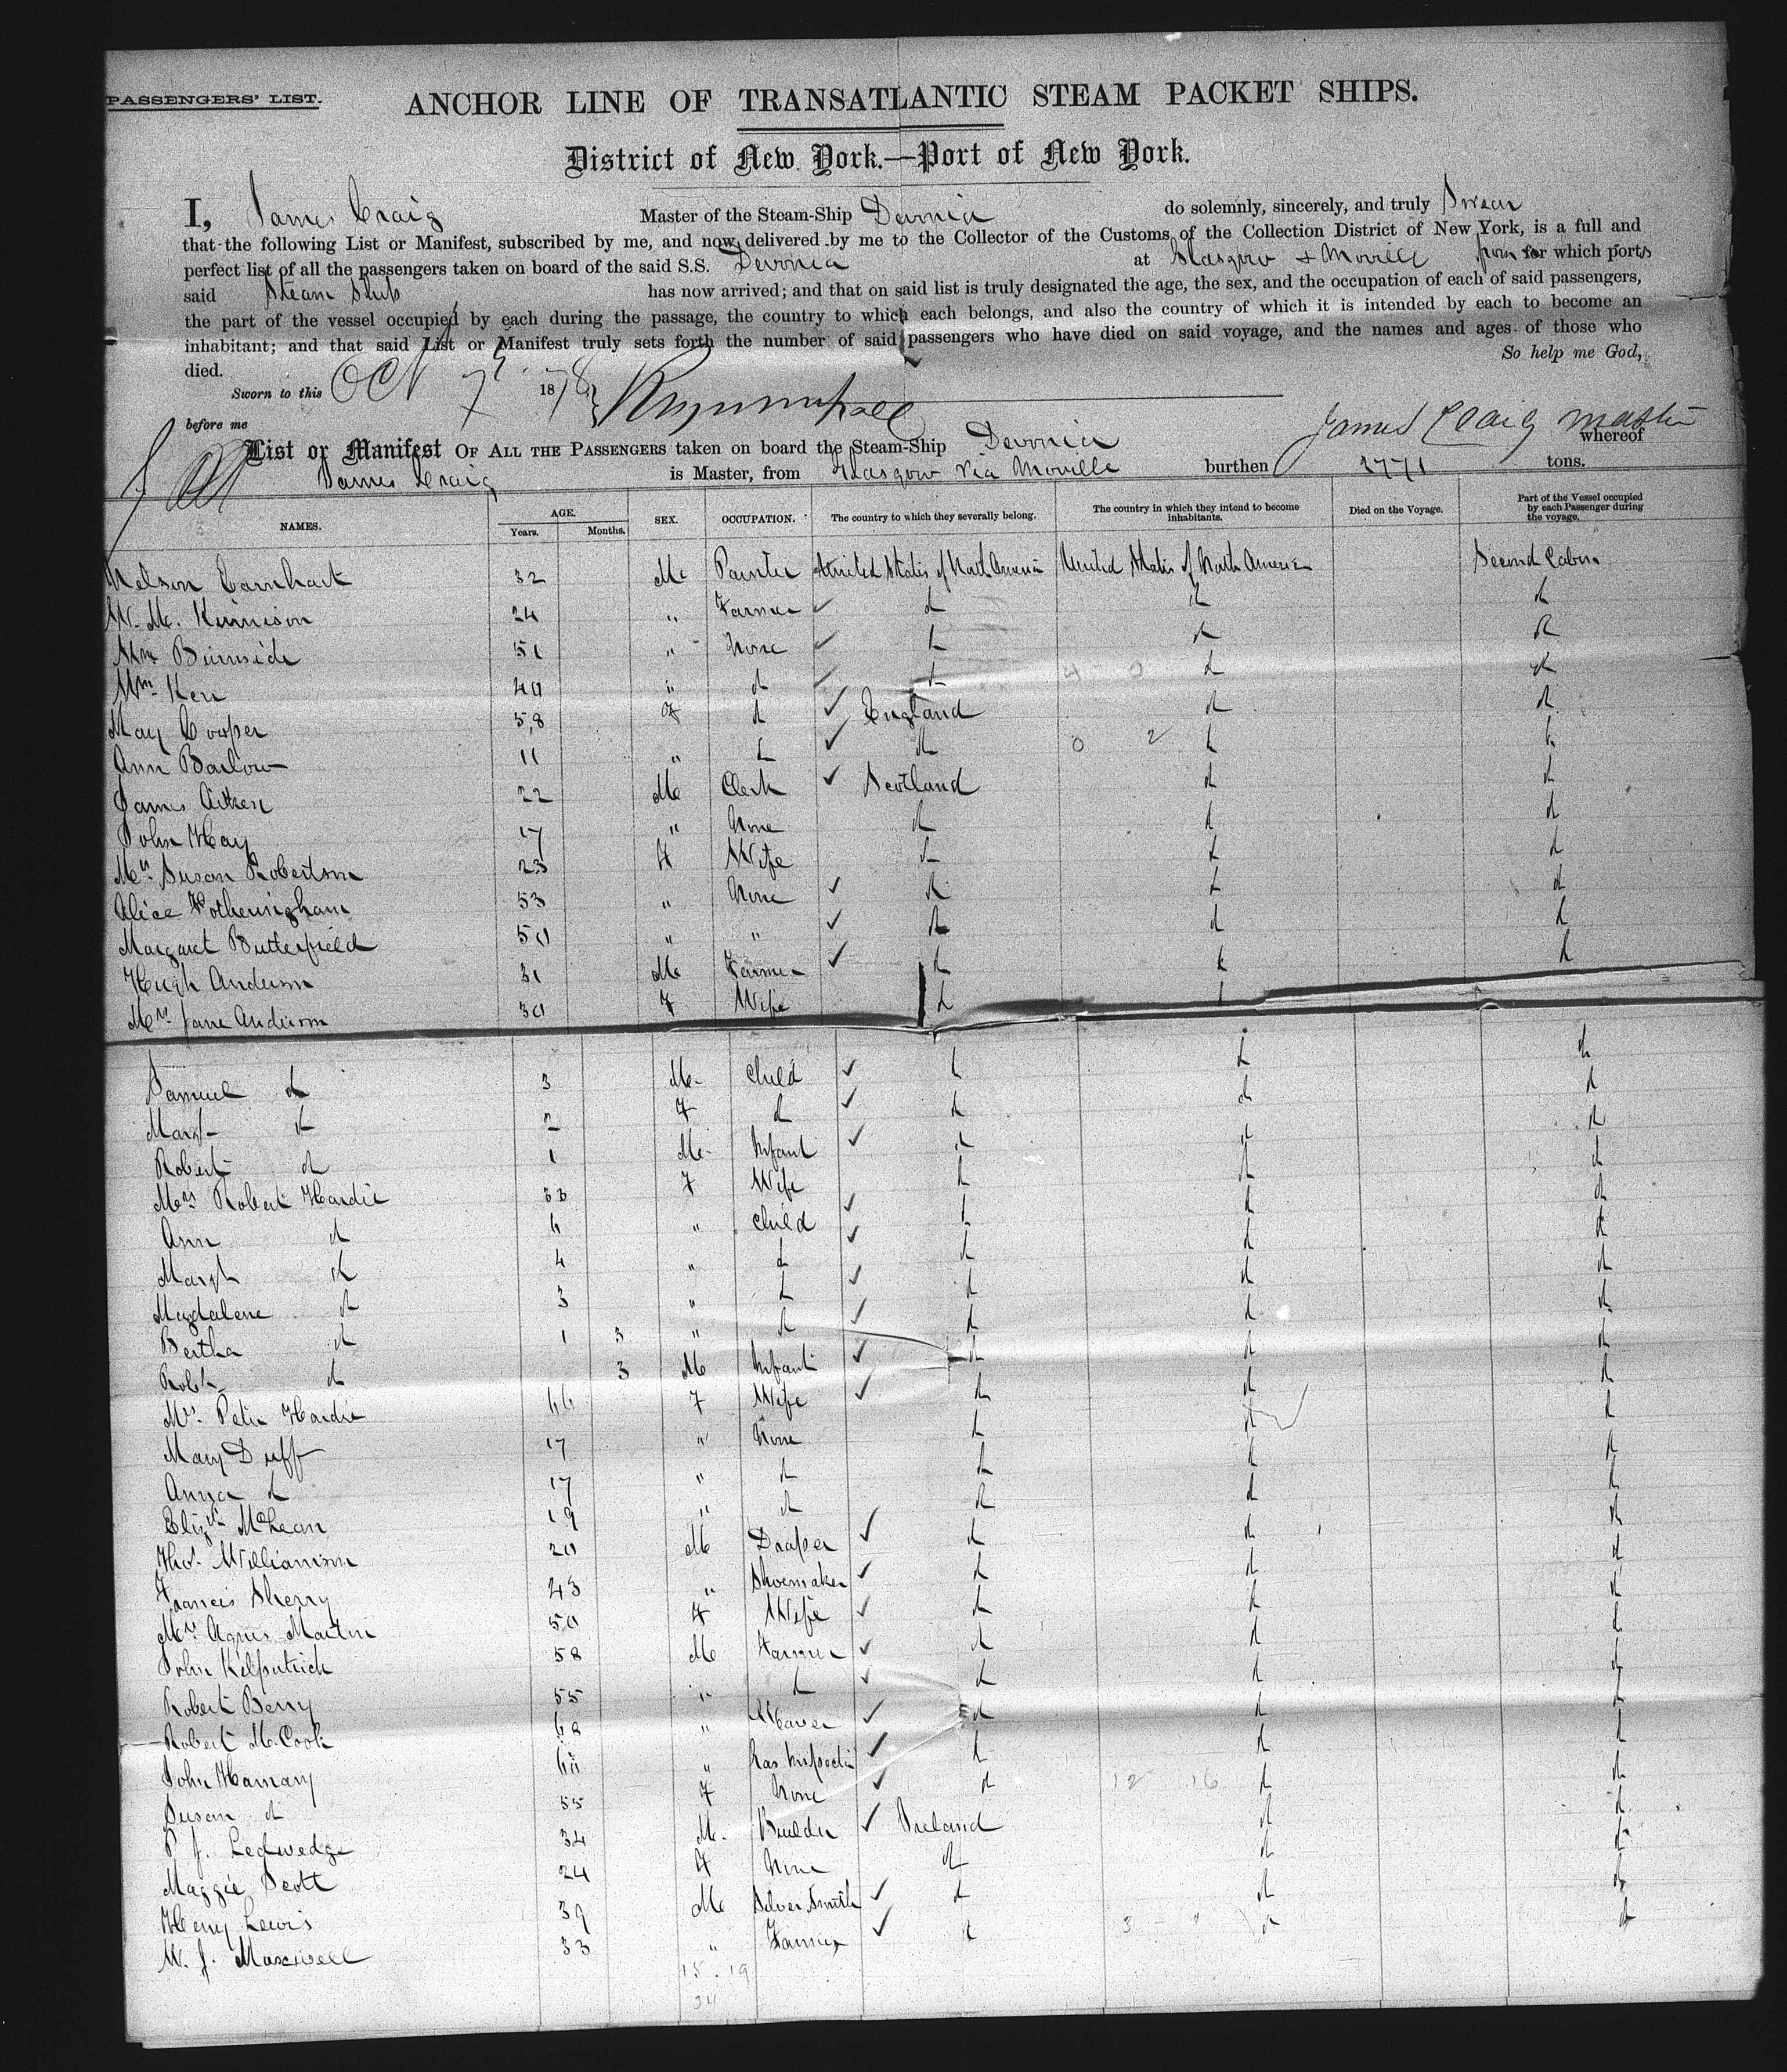 PASSENGERS' LIST.
ANCHOR LINE OF TRANSATLANTIC STEAM PACKET SHIPS.
District of New York.—Port of New York.
I, James Craig Master of the Steam-Ship Devonia do solemnly, sincerely, and truly Swear
that the following List or Manifest, subscribed by me, and now delivered by me to the Collector of the Customs of the Collection District of New York, is a full and
perfect list of all the passengers taken on board of the said S.S. Devonia at Glasgow & Moville from for which ports
said Steam Ship has now arrived; and that on said list is truly designated the age, the sex, and the occupation of each of said passengers,
the part of the vessel occupied by each during the passage, the country to which each belongs, and also the country of which it is intended by each to become an
inhabitant; and that said List or Manifest truly sets forth the number of said passengers who have died on said voyage, and the names and ages of those who
died. So help me God,
Sworn to this Oct 7 1878
before me James Craig Master
List or Manifest OF ALL THE PASSENGERS taken on board the Steam-Ship Devonia whereof
James Craig is Master, from Glasgow via Moville burthen 2771 tons.
NAMES. AGE. Years. Months. SEX. OCCUPATION. The country to which they severally belong. The country in which they intend to become inhabitants. Died on the Voyage. Part of the Vessel occupied by each Passenger during the voyage.
Nelson Earnhart 32 M Painter United States of North America United States of North America Second Cabin
W. M. Kinnison 24 " Farmer do do do
Wm Burnside 51 " None do do do
Wm Kerr 40 " do do do do
May Cowper 58 F do England do do
Ann Barlow 11 " do do do do
James Aitken 22 M Clerk Scotland do do
John Hay 17 " None do do do
Mrs Susan Robertson 23 F Wife do do do
Alice Fotheringham 53 " None do do do
Margaret Butterfield 50 " " do do do
Hugh Anderson 31 M Farmer do do do
Mrs Jane Anderson 30 F Wife do do
Samuel do 3 M Child do do do
Margt do 2 F do do do do
Robert do 1 M Infant do do do
Mrs Robert Hardie 33 F Wife do do do
Ann do 6 " Child do do do
Margt do 4 " do do do do
Magdalene do 3 " do do do do
Bertha do 1 3 " do do do do
Robt do 3 M Infant do do do
Mrs Peter Hardie 66 F Wife do do do
Mary Duff 17 " None do do do
Anna do 17 " do do do do
Elizth McLean 19 " do do do do
Thos. Williamson 20 M Draper do do do
Francis Sherry 43 " Shoemaker do do do
Mrs Agnes Martin 50 F Wife do do do
John Kilpatrick 58 M Farmer do do do
Robert Berry 55 " do do do do
Robert McCook " Weaver do do do
John Hannay 60 " Gas Inspector do do do
Susan do 55 F None do do do
P. J. Ledwedge 34 M Builder Ireland do do
Maggie Scott 24 F None do do do
Henry Lewis 39 M Silver Smith do do do
W. J. Maxwell 33 " Farmer do do do
15 . 19
34